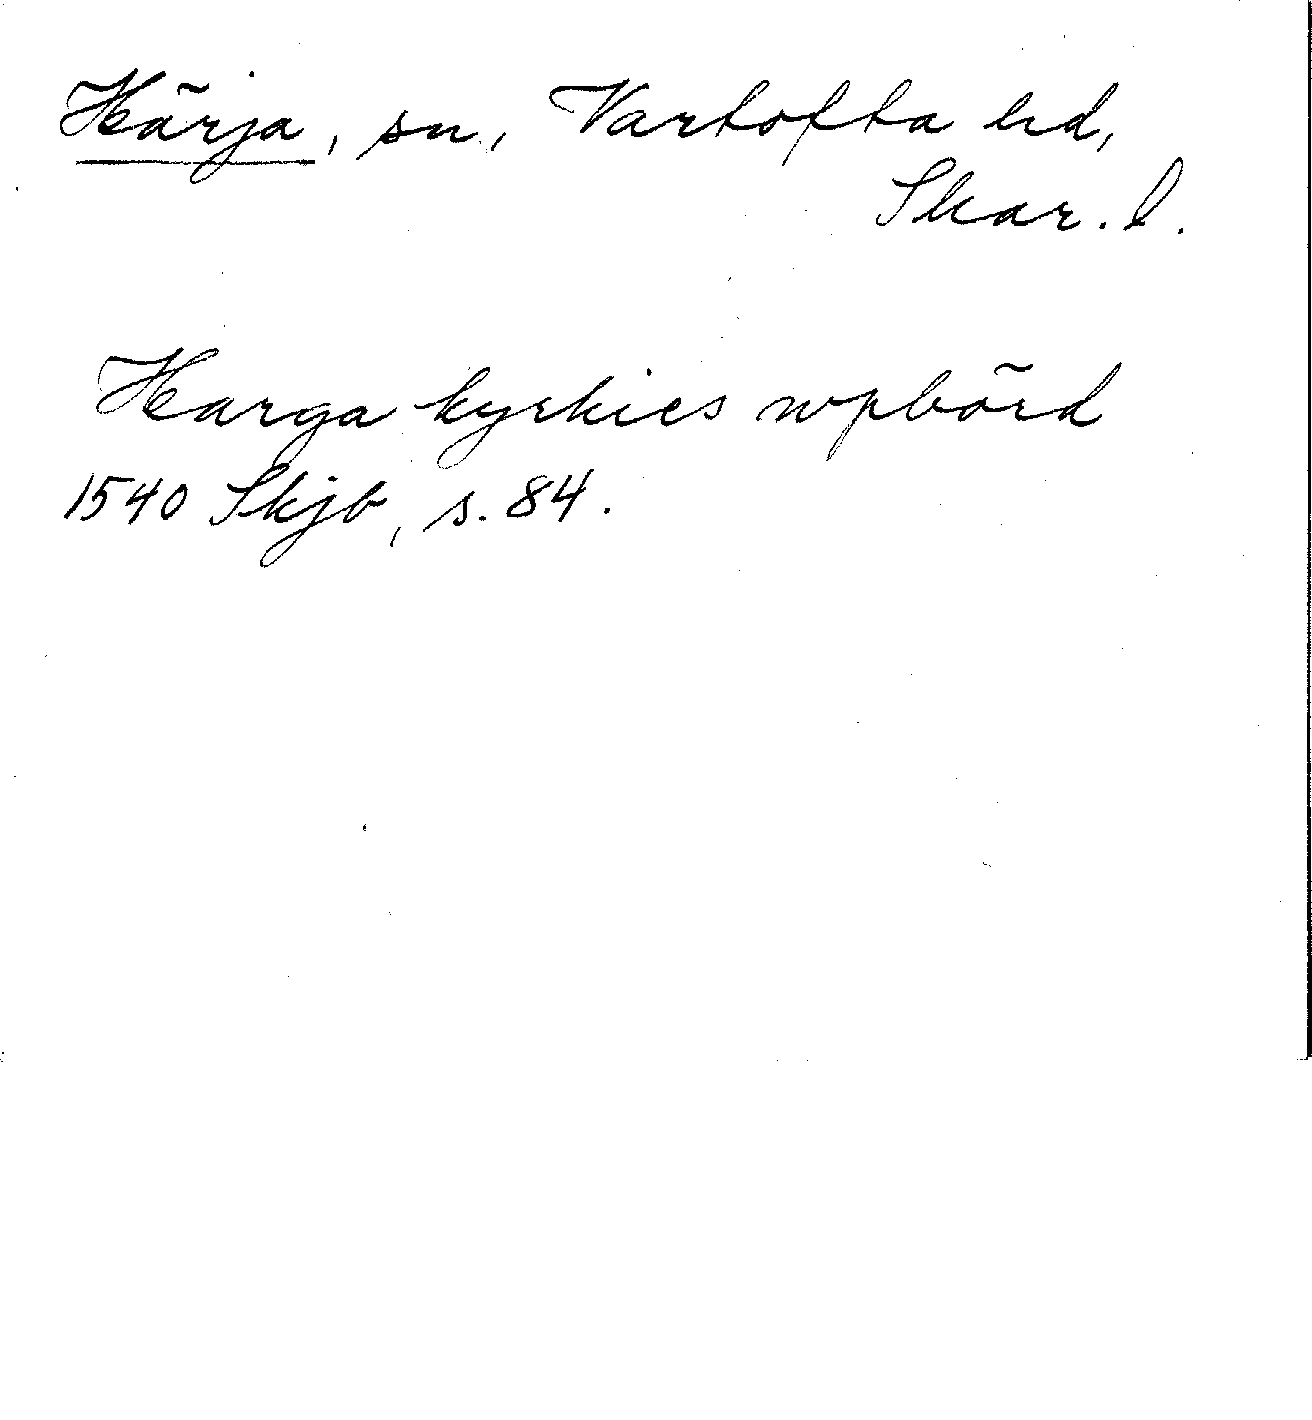 Härja, sn, Vartofta hd,
Skar. l.
Harga kyrkies wpbörd
1540 Skjb, s. 84.